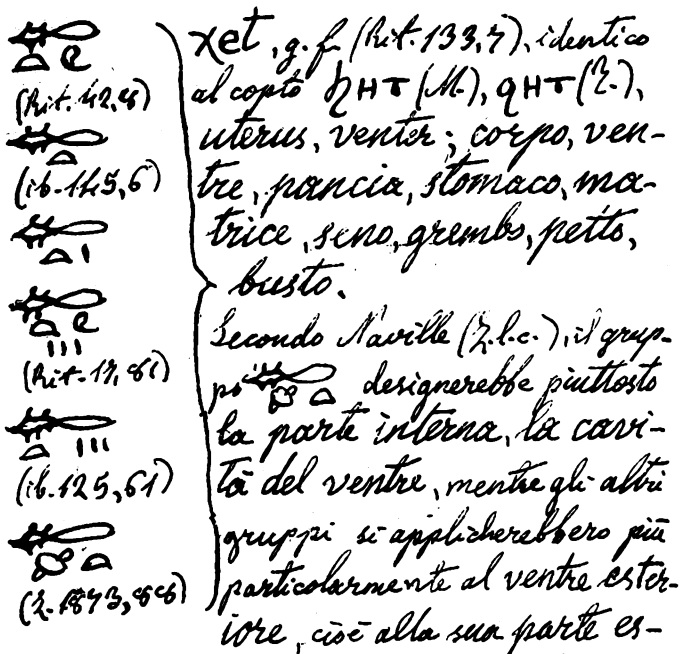 (Rit. 42,8)
(ib. 145,6)
(Rit. 17, 81)
(ib. 125, 61)
(Z. 1873, 88)
χet, g. f. (Rit. 133, 7), identico
al copto ϧⲏⲧ (M.), ϥⲏⲧ (Z.),
uterus, venter; corpo, ven-
tre, pancia, stomaco, ma-
trice, seno, grembo, petto,
busto.
Secondo Naville (Z. l. c.), il grup-
po designerebbe piuttosto
la parte interna, la cavi-
tà del ventre, mentre gli altri
gruppi si applicherebbero più
particolarmente al ventre ester-
iore, cioè alla sua parte es-